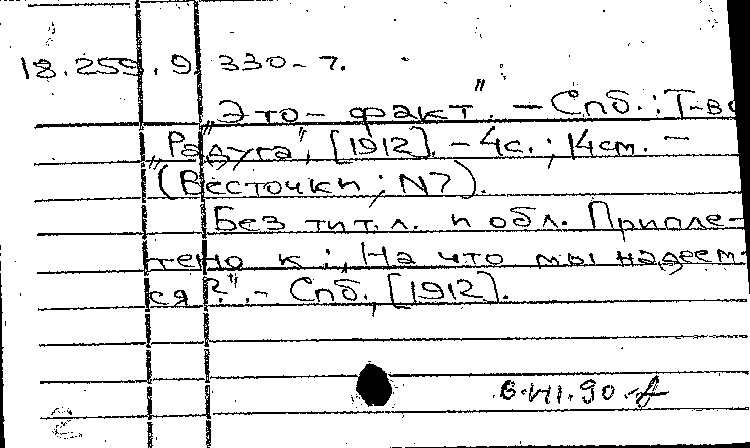 18.259.9.330-7.
„Это - факт". - Спб.: Т-во
„Радуга", [1912]. - 4с.; 14см. -
„(Весточки; N7).
Без тит.л. и обл. Припле-
тено к: „На что мы надеем-
ся?". - Спб., [1912].
6.VII.90.